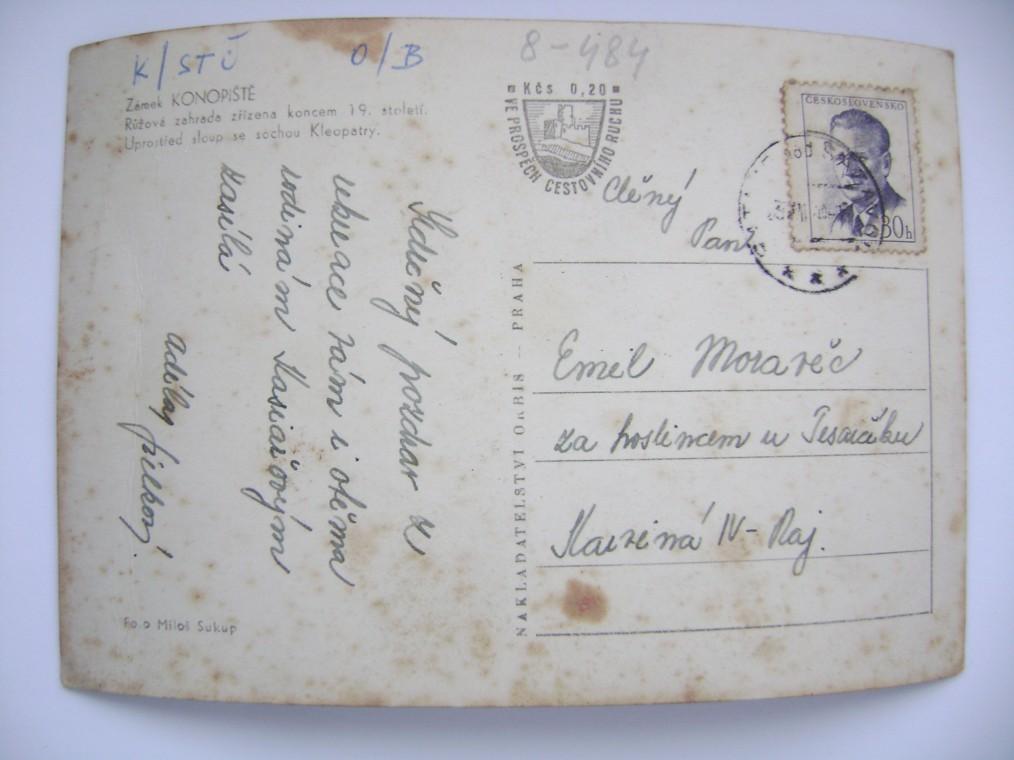 K/STŮ O/B 8-484
Zámek KONOPIŠTĚ
Růžová zahrada zřízena koncem 19. století.
Uprostřed sloup se sochou Kleopatry.
Kčs 0,20
VE PROSPĚCH CESTOVNÍHO RUCHU
ČESKOSLOVENSKO
30h
Ctěný
Pan
Emil Moravěc
za hostincem u Tesarčíku
Karviná IV - Raj.
NAKLADATELSTVÍ ORBIS – PRAHA
Srdečný pozdrav z
rekreace Vám i oběma
rodinám
zasílá
Foto Miloš Sukup